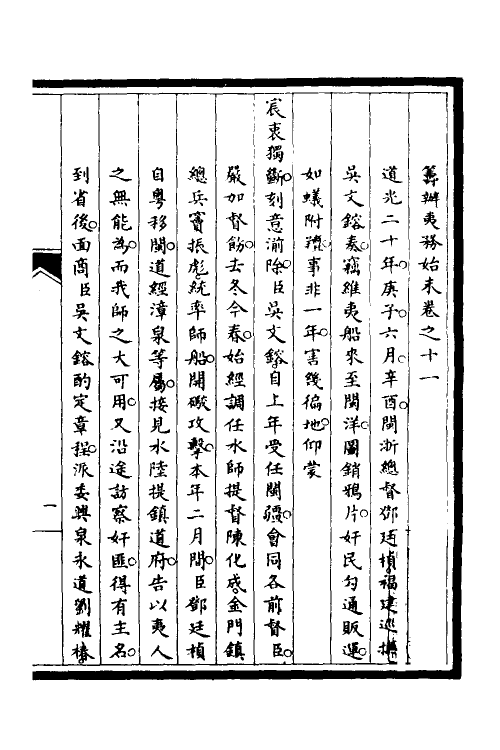 籌辦夷務始末卷之十一
道光二十年。庚子六月。辛酉。閩浙總督鄧廷楨。福建巡撫
吳文鎔奏。竊維夷船來至閩洋。圖銷鴉片。奸民勾通販運。
如蟻附羶。事非一年。害幾徧地。仰蒙
宸衷獨斷。刻意湔除。臣吳文鎔。自上年受任閩疆。會同各前督臣。
嚴加督飭。去冬今春。始經調任水師提督陳化成。金門鎮
總兵竇振彪。統率師船。開礮攻擊。本年二月間。臣鄧廷楨
自粵移閩。道經漳泉等屬。接見水陸提鎮道府。告以夷人
之無能為。而我師之大可用。又沿途訪察奸匪。得有主名。
到省後。面商臣吳文鎔。酌定章程。派委興泉永道劉耀椿。
一